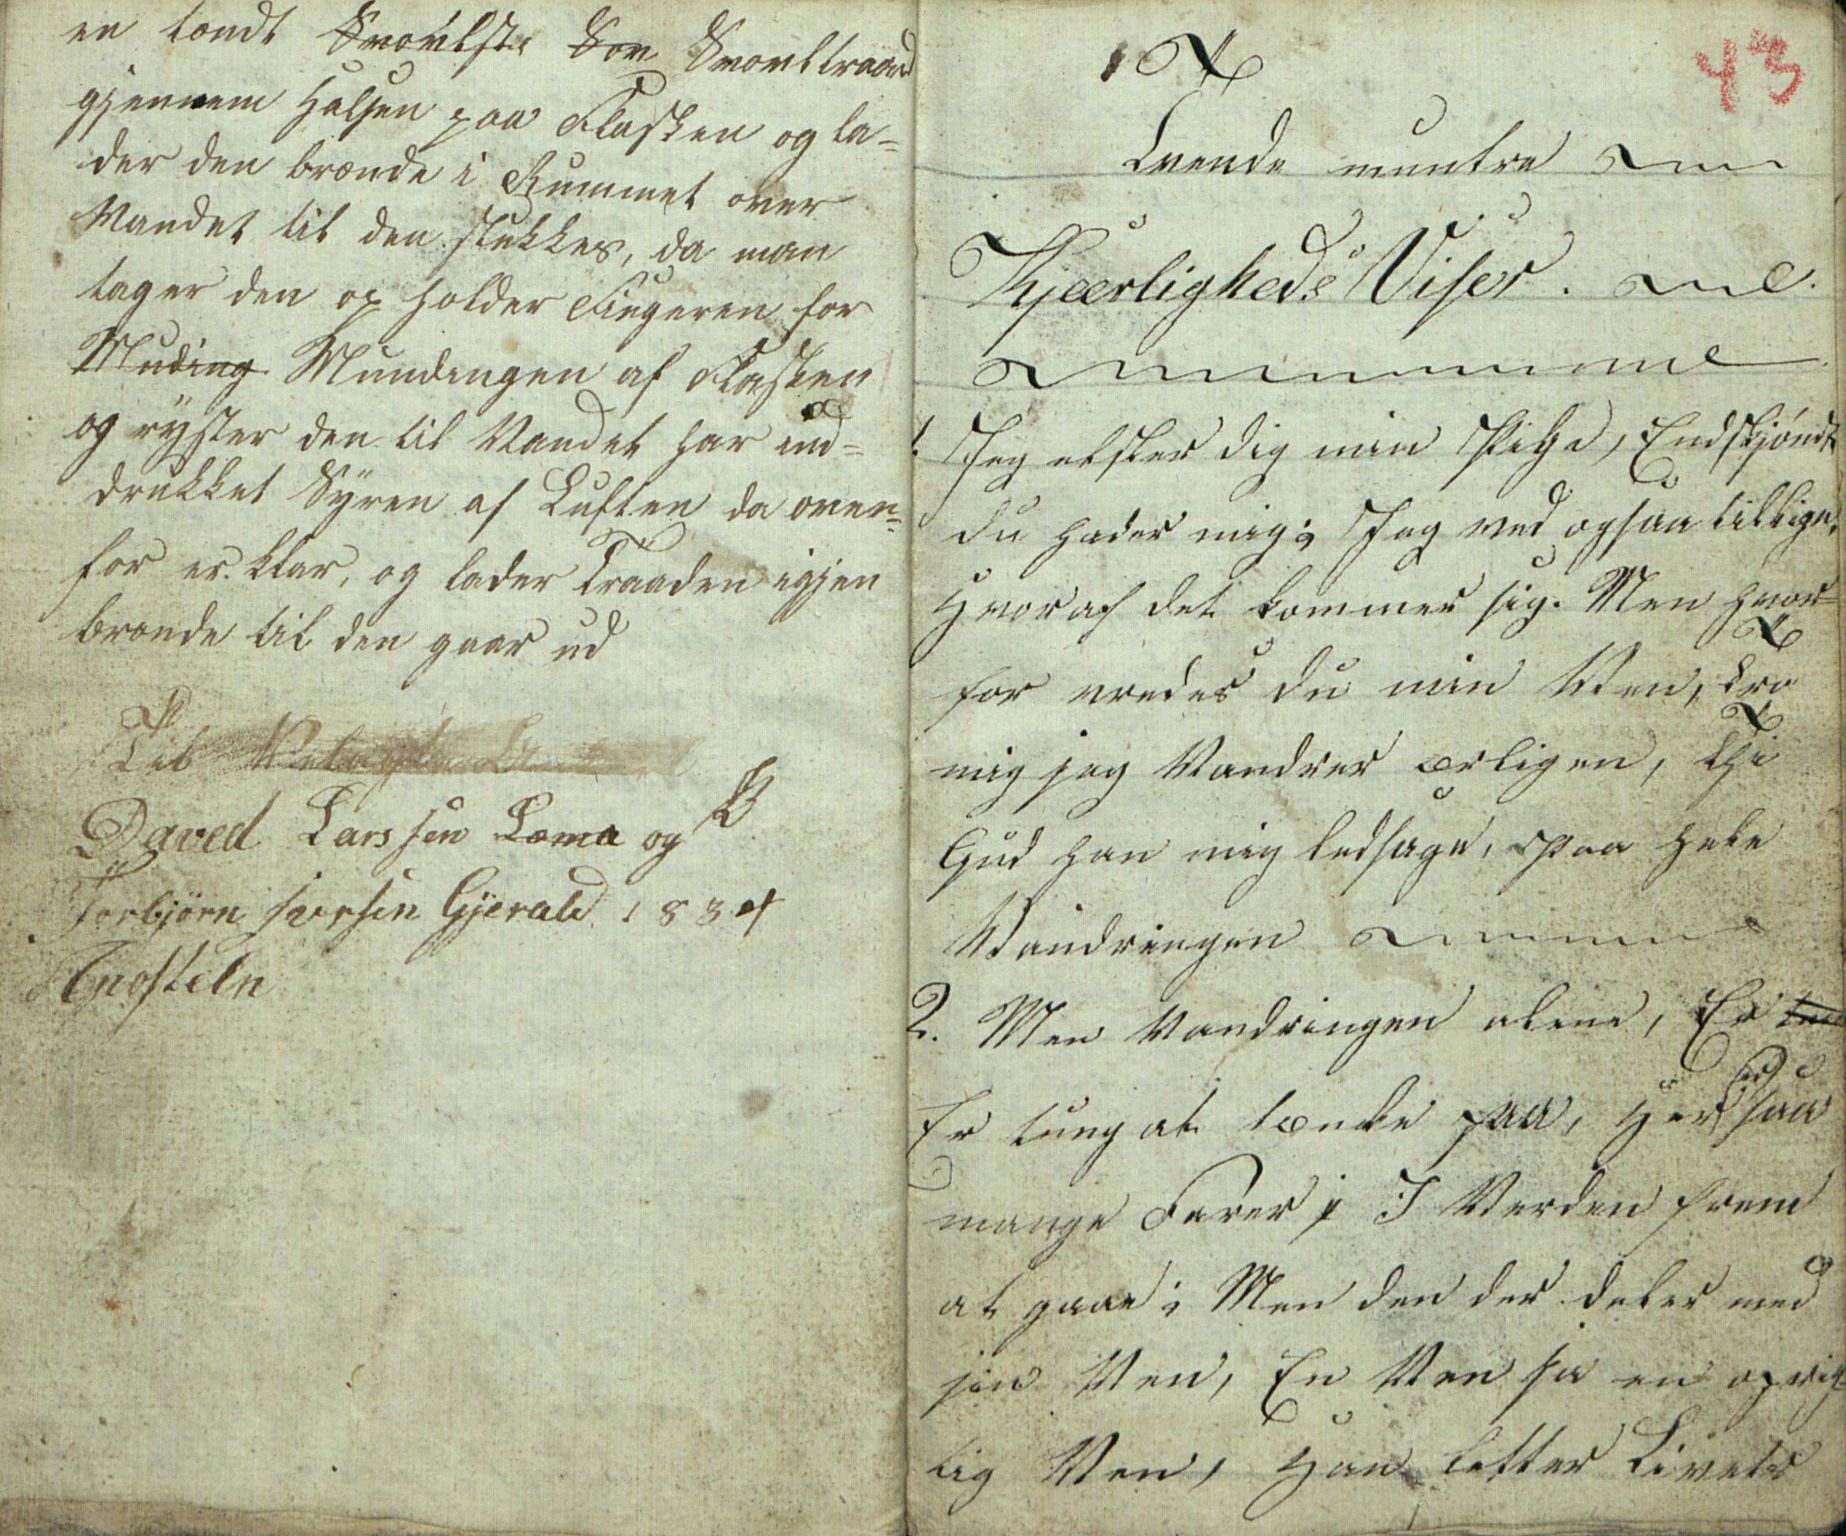 en tændt Svovelst: Sov Svovltraad
gjennem Halsen paa Flasken og la-
der den brænde i Rummet over
Vandet til den slukkes, da man
tager den op holder Fingeren for
Muding Mundingen af Flasken
og ryster den til Vandet har ind-
drukket Syren af Luften da oven-
for er klar, og lader Traaden igjen
brænde til den gaar ud
Til
Daved Larssen Læma og
Torbjørn Iversen Gjerald 1834
43
Tvende muntre
Kjærligheds Viser.
1. Jeg elsker dig min Pige, Endskjøndt
du hader mig; Jeg ved ogsaa tillige,
Hvoraf det kommer sig. Men hvor-
for vredes du min Ven, tro
mig jeg Vandrer ærligen, thi
Gud han mig ledsage, Paa hele
Vandringen
2. Men Vandringen alene, Er tun
Er tung at tænke paa, Her er saa
mange Farer i I Verden frem
at gaae; Men den der deler med
sin Ven, En Ven ja en oprig-
tig Ven, Han letter Livets